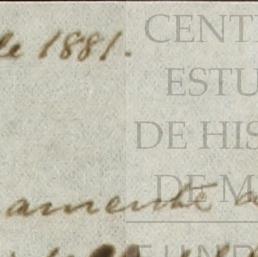 de 1881.
CENT
ESTU
DE HIS
DE M
amente
FUND